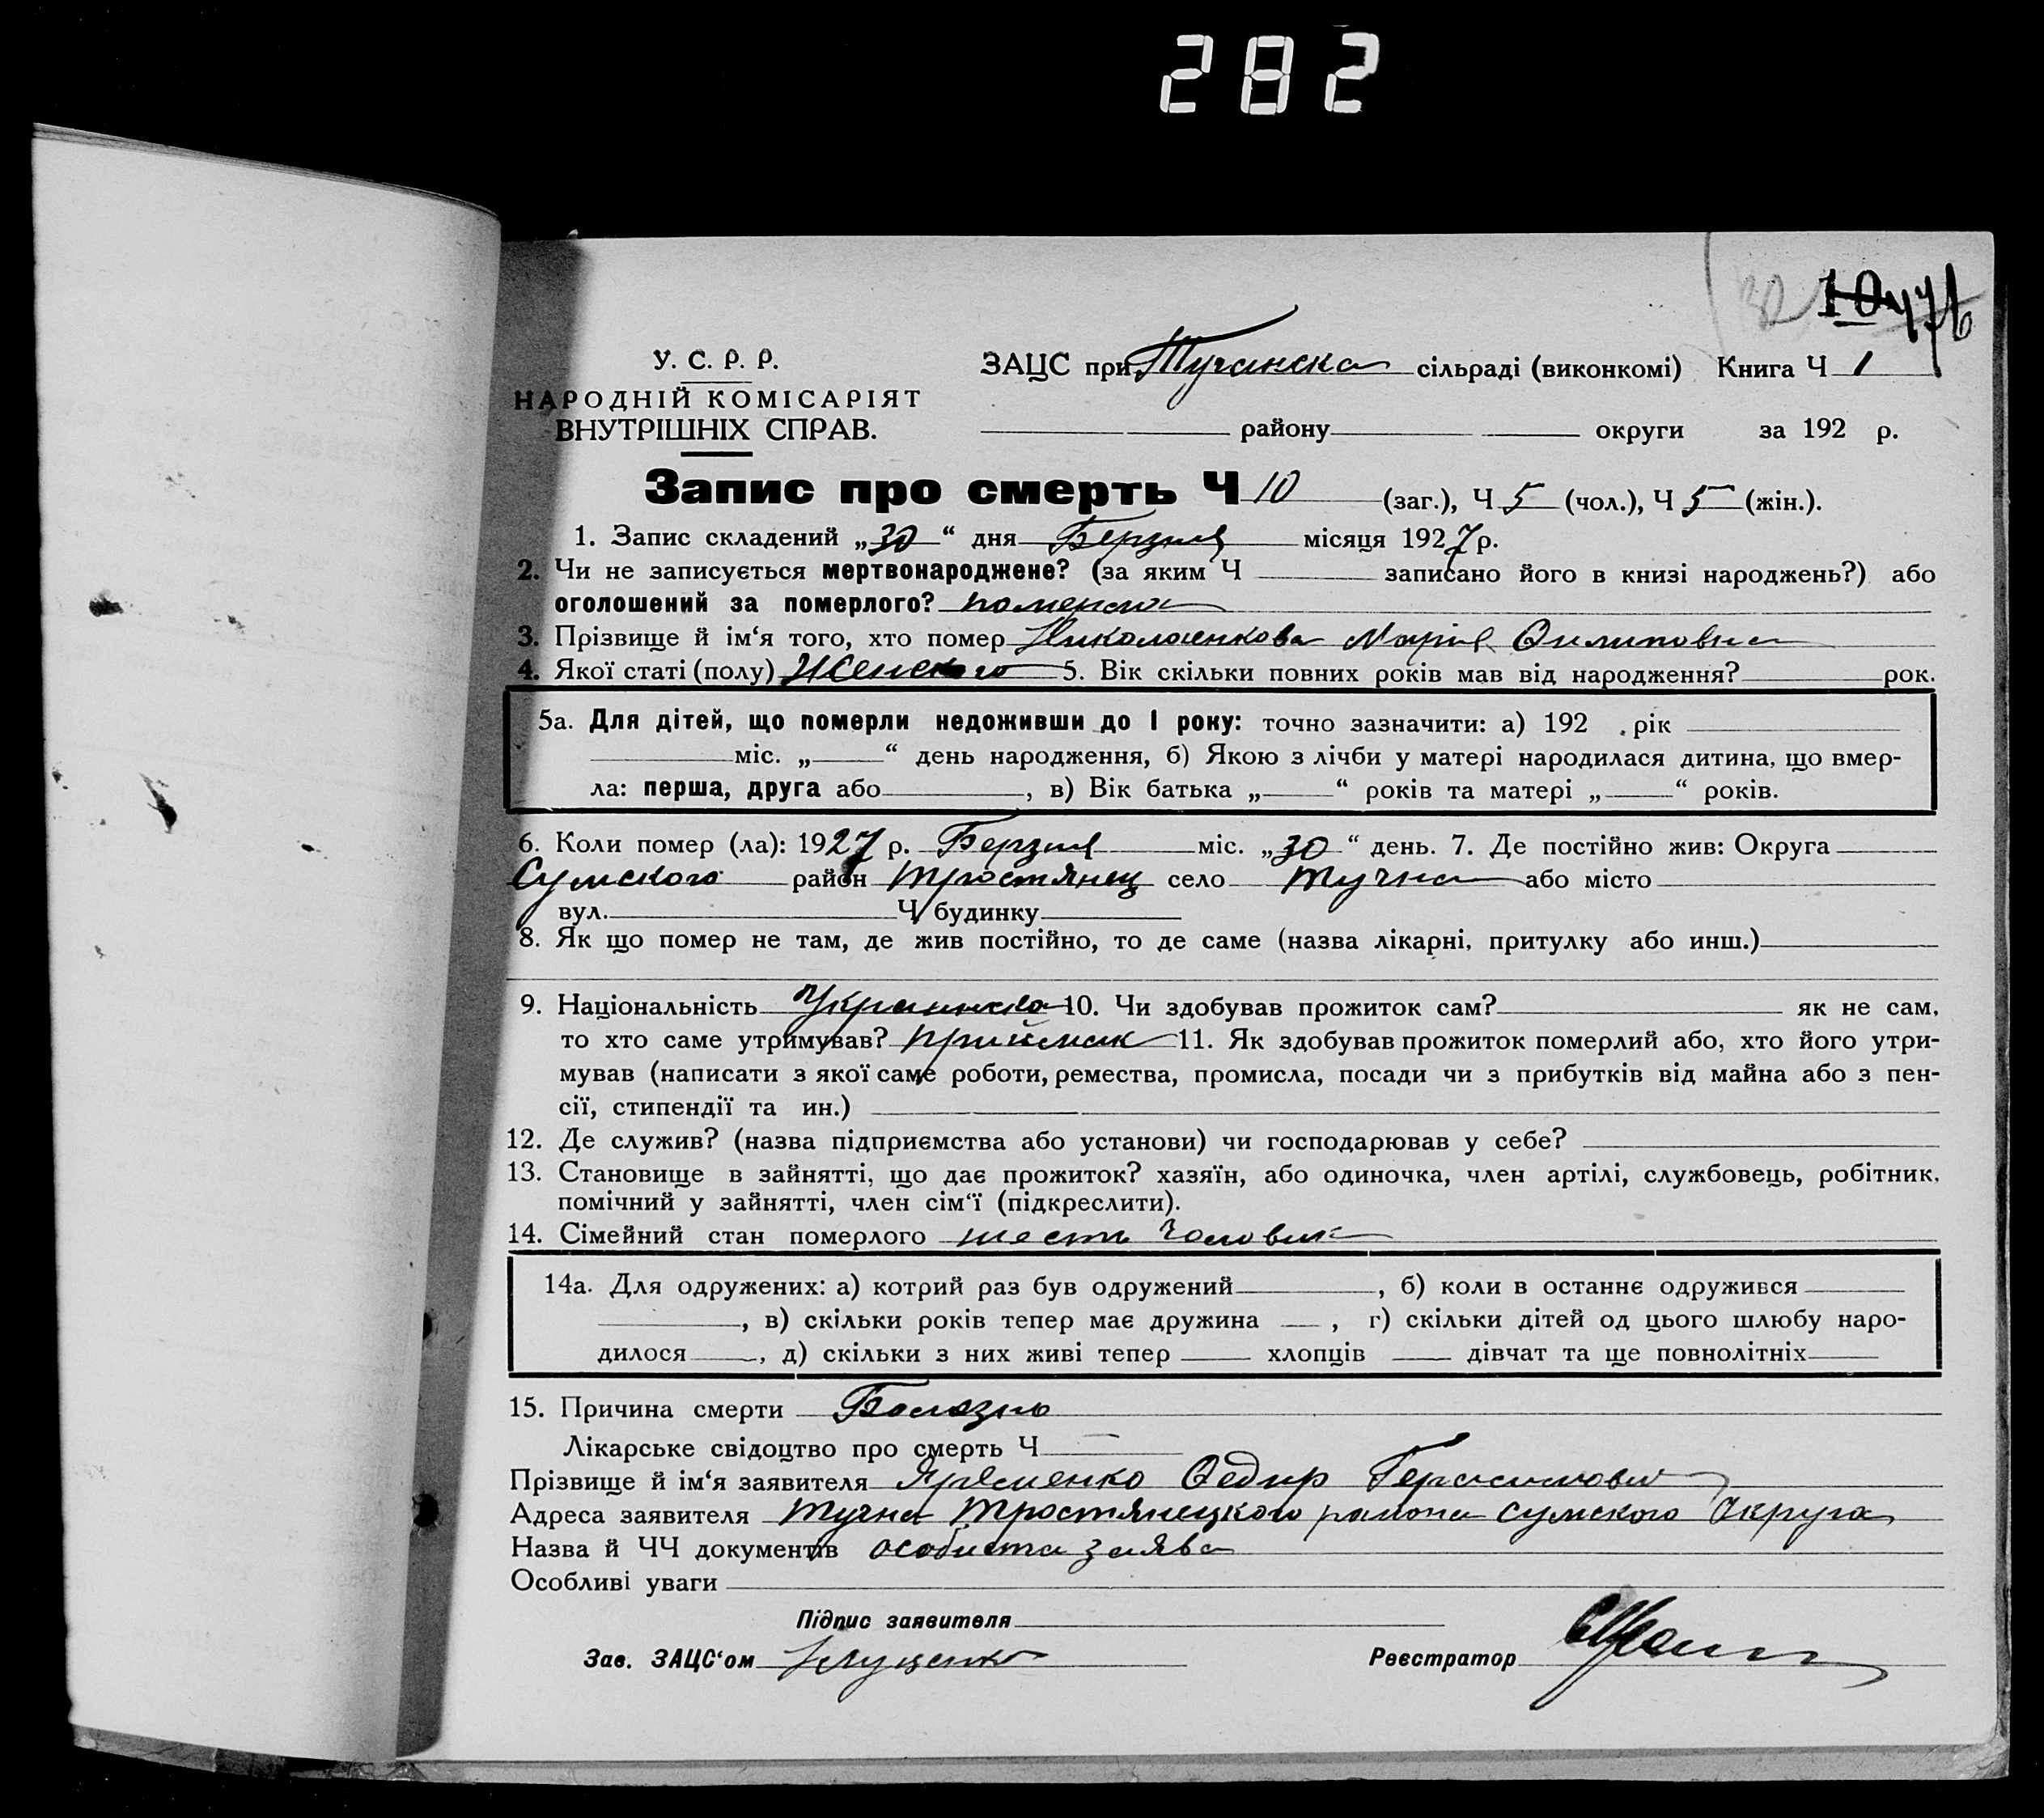 282
32 10 476
У. С. Р. Р.
НАРОДНІЙ КОМІСАРІЯТ
ВНУТРІШНІХ СПРАВ.
ЗАЦС при Тучанска сільраді (виконкомі) Книга Ч 1
району округи за 192 р.
Запис про смерть Ч 10 (заг.), Ч 5 (чол.), Ч 5 (жін.).
1. Запис складений „30“ дня Берзня місяця 1927 р.
2. Чи не записується мертвонароджене? (за яким Ч записано його в книзі народжень?) або
оголошений за померлого?
3. Прізвище й ім‘я того, хто помер Николаенкова Марія Филиповна
4. Якої статі (полу) Женского 5. Вік скільки повних років мав від народження? рок.
5а. Для дітей, що померли недоживши до 1 року: точно зазначити: а) 192 . рік
міс. „ “ день народження, б) Якою з лічби у матері народилася дитина, що вмер-
ла: перша, друга або , в) Вік батька „ “ років та матері „ “ років.
6. Коли помер (ла): 1927 р. Берзня міс. „30“ день. 7. Де постійно жив: Округа
Сумского район Тростянец село Тучна або місто
вул. Ч. будинку
8. Як що помер не там, де жив постійно, то де саме (назва лікарні, притулку або инш.)
9. Національність Украинска 10. Чи здобував прожиток сам? як не сам,
то хто саме утримував? приймак 11. Як здобував прожиток померлий або, хто його утри-
мував (написати з якої саме роботи, ремества, промисла, посади чи з прибутків від майна або з пен-
сії, стипендії та ин.)
12. Де служив? (назва підприємства або установи) чи господарював у себе?
13. Становище в зайнятті, що дає прожиток? хазяїн, або одиночка, член артілі, службовець, робітник,
помічний у зайнятті, член сім‘ї (підкреслити).
14. Сімейний стан померлого шесть Чоловик
14а. Для одружених: а) котрий раз був одружений , б) коли в останнє одружився
, в) скільки років тепер має дружина , г) скільки дітей од цього шлюбу наро-
дилося , д) скільки з них живі тепер хлопців дівчат та ще повнолітніх
15. Причина смерти Болезнь
Лікарське свідоцтво про смерть Ч —
Прізвище й ім‘я заявителя Яременко Федир Герасимович
Адреса заявителя Тучна Тростянецкого району Сумского Округа
Назва й ЧЧ документів особиста заява
Особливі уваги
Підпис заявителя
Зав. ЗАЦС‘ом Реєстратор